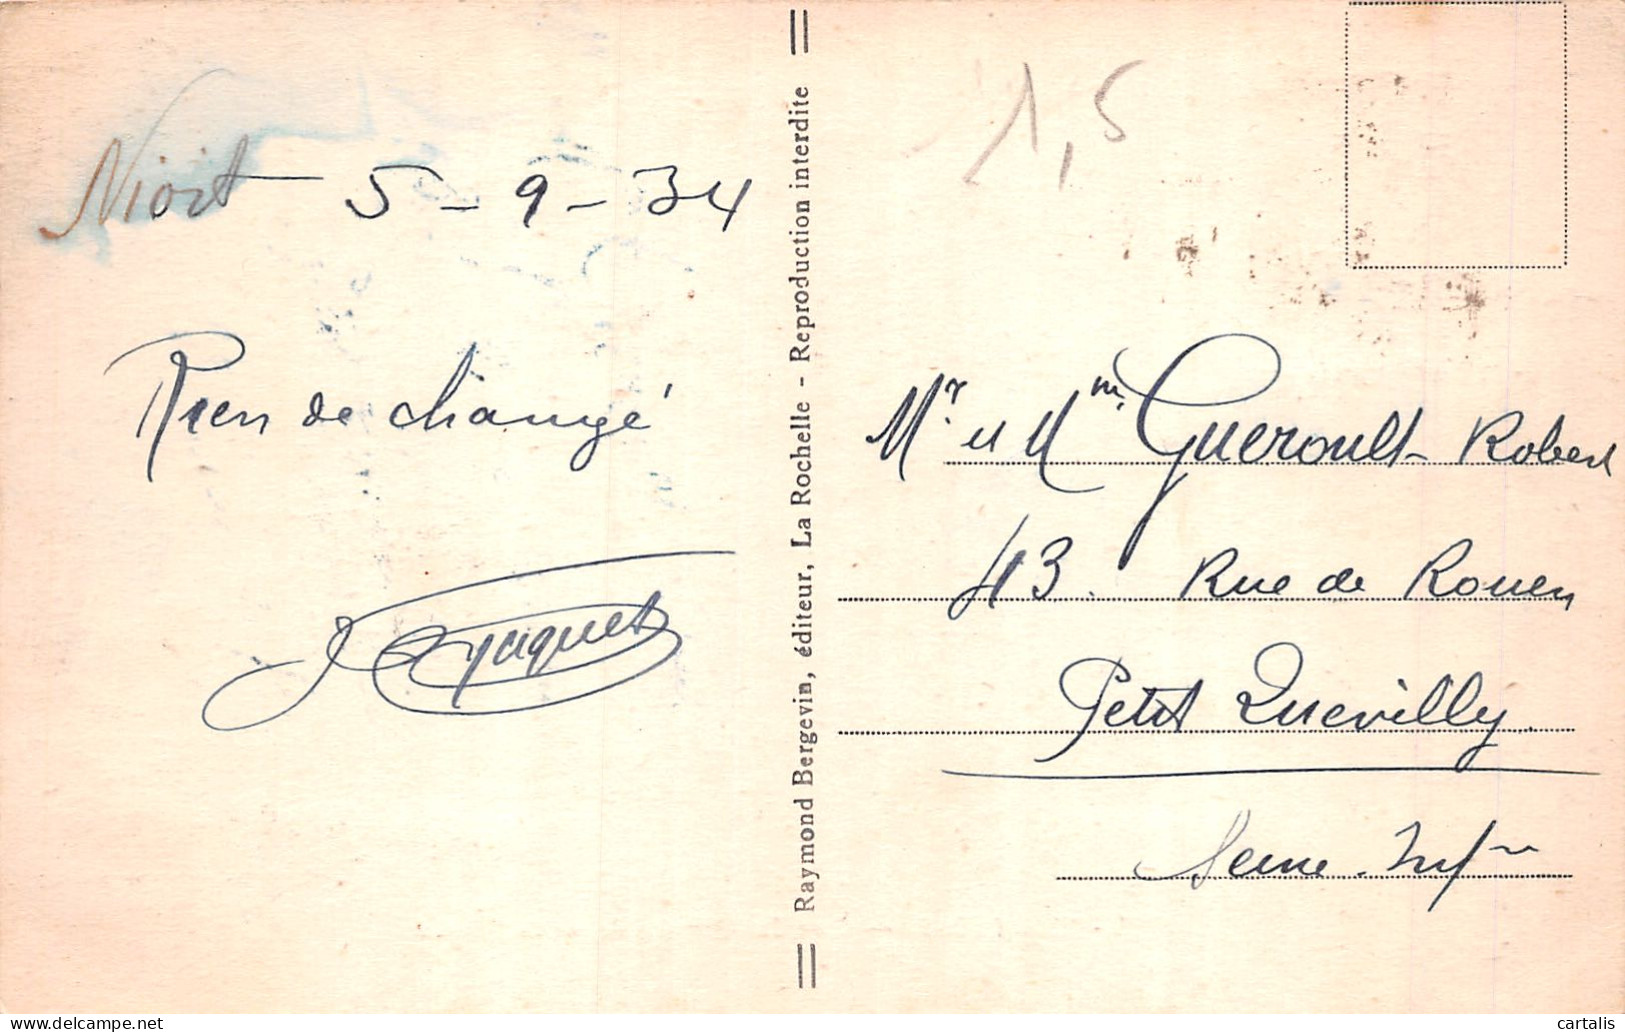 Niort 5-9-34
Rien de changé
Raymond Bergevin, éditeur, La Rochelle - Reproduction interdite
1,5
Mr. et Mm. Gueroult Robert
43. Rue de Rouen
Petit Quevilly
Seine. Infre
cartalis